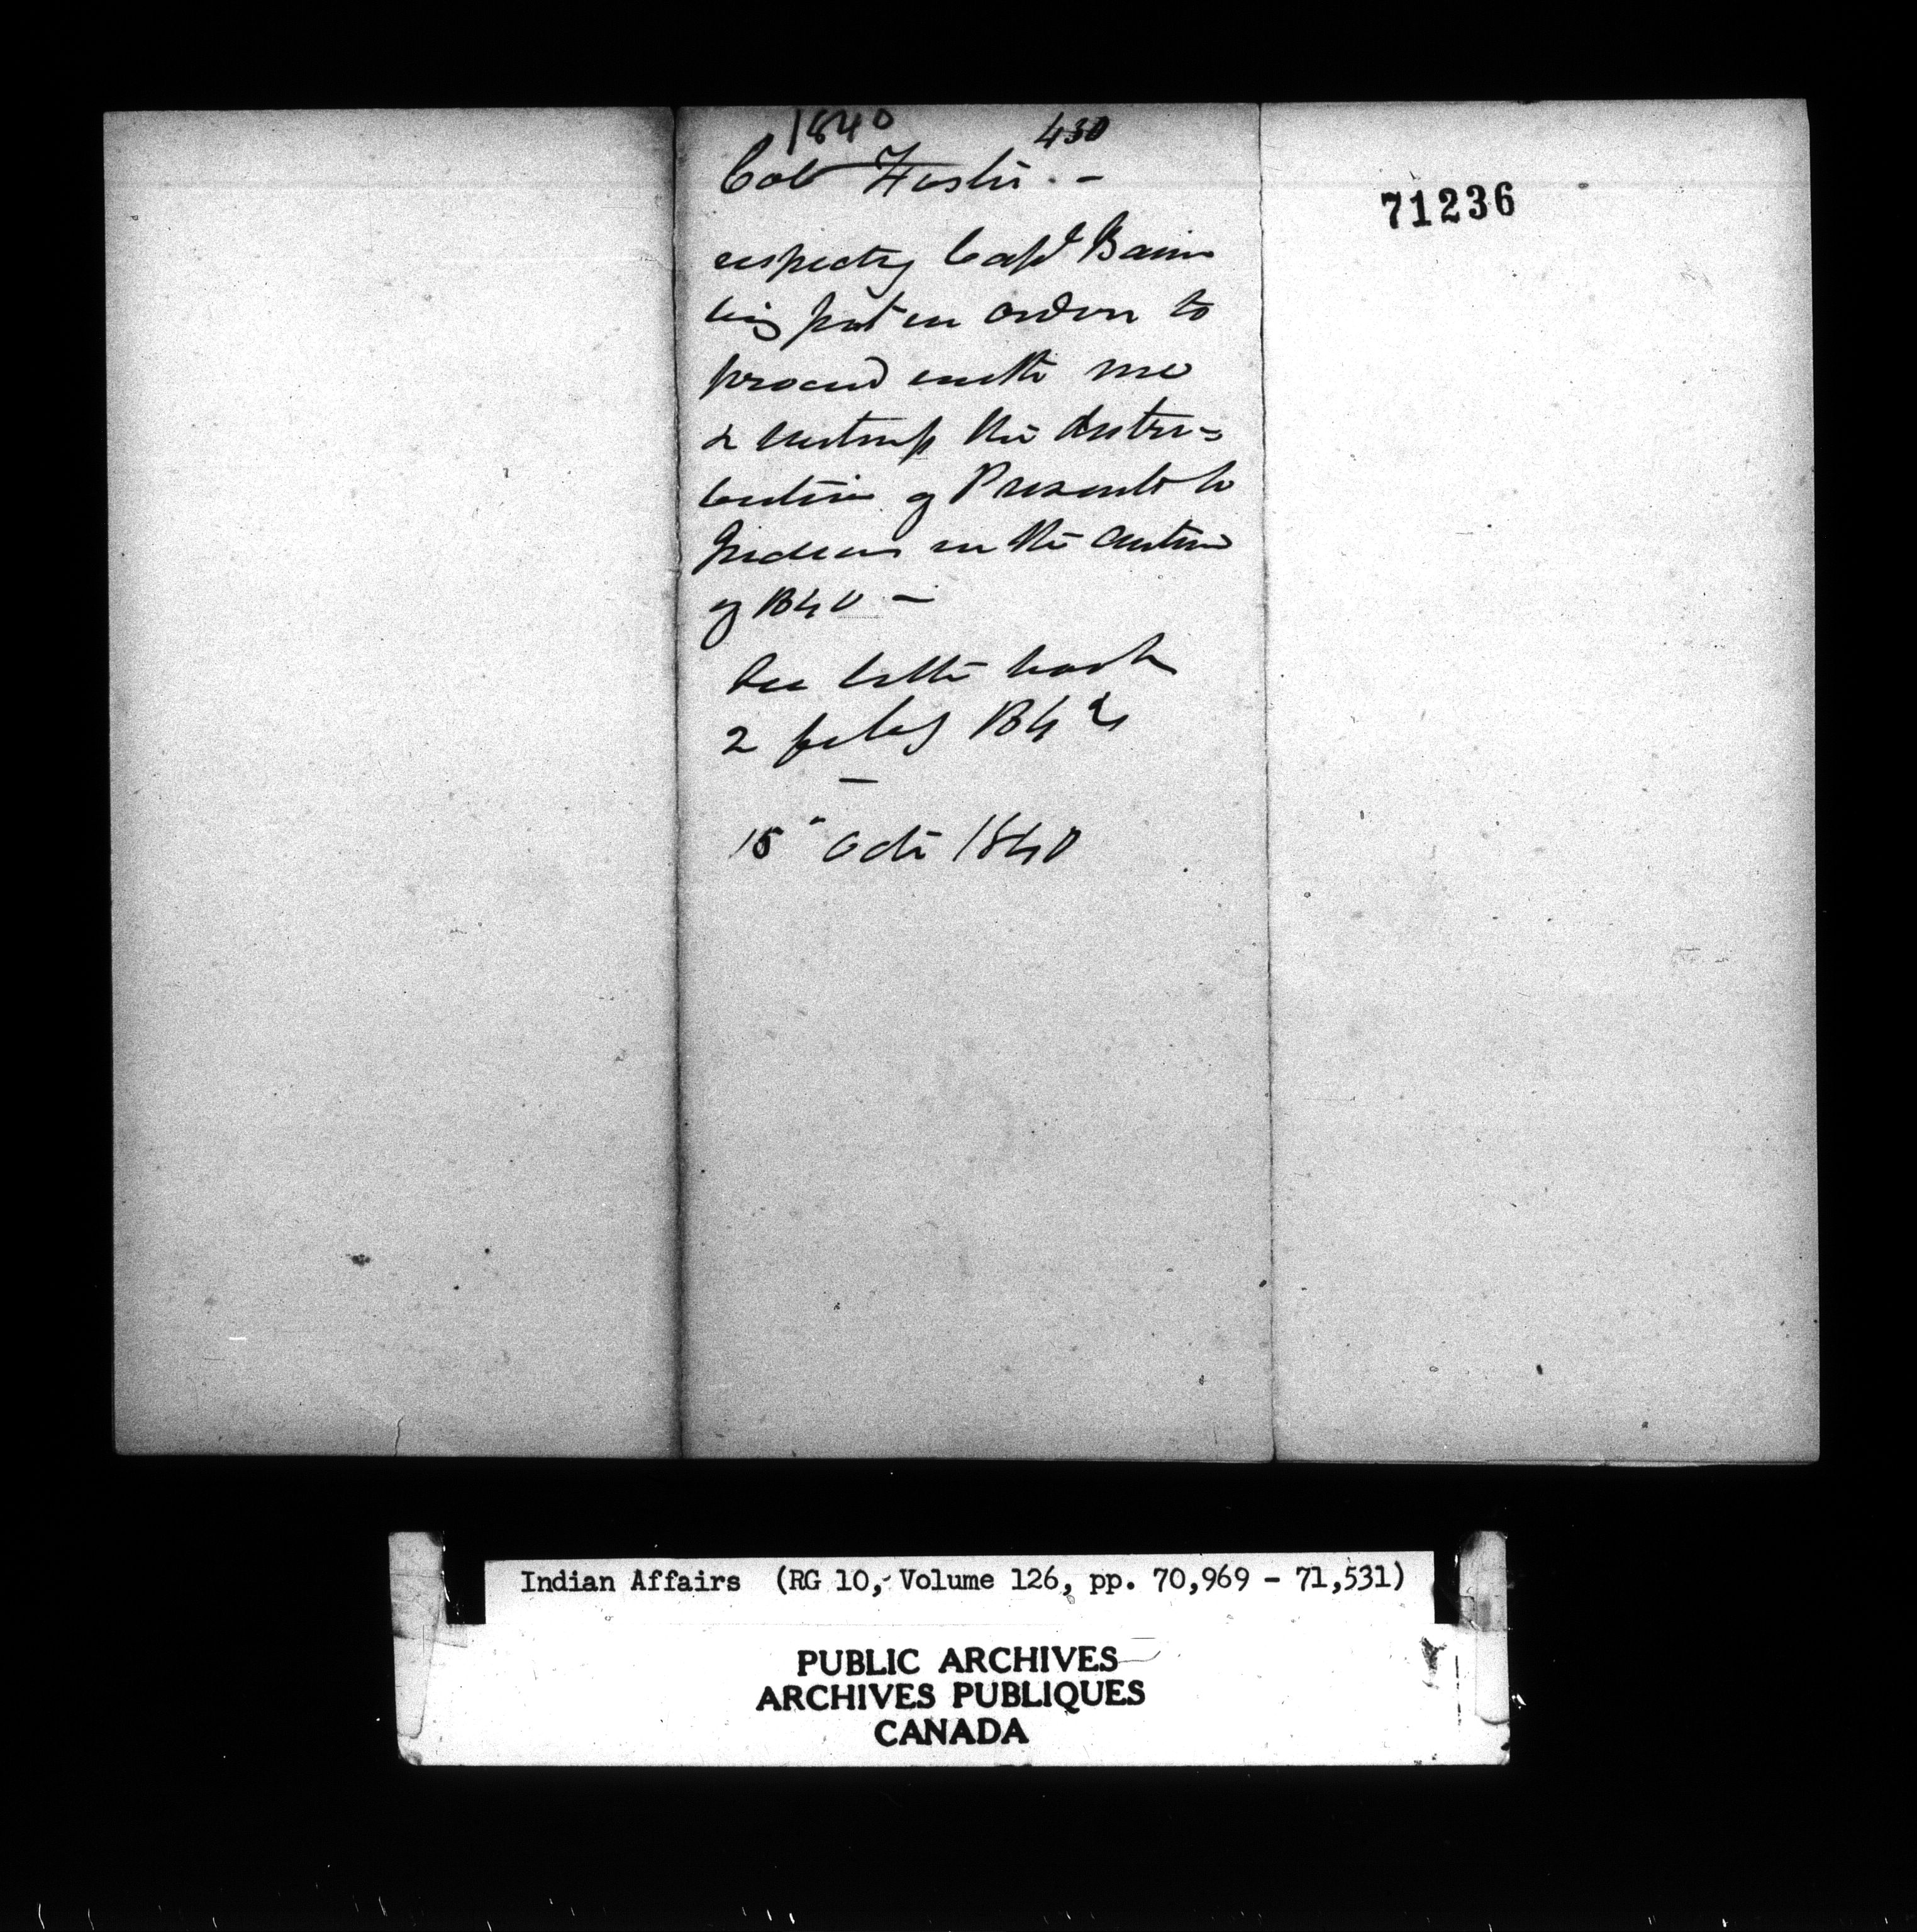 1840
430
Col Foster. -
respectg Capt Bain
being put in orders to
proceed with me
& witness the distri=
bution of Presents to
Indians in the autumn
of 1840 -
See letter book
2 feby 1842
-
15" Octr 1840
71236
Indian Affairs (RG 10, Volume 126, pp. 70,969 - 71,531)
PUBLIC ARCHIVES
ARCHIVES PUBLIQUES
CANADA